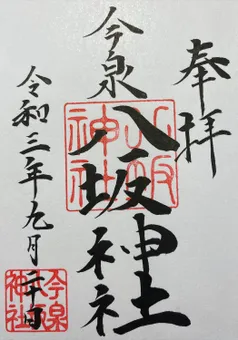 奉拝
今泉
八坂神社
八坂神社
令和三年九月二十日
今泉八坂神社